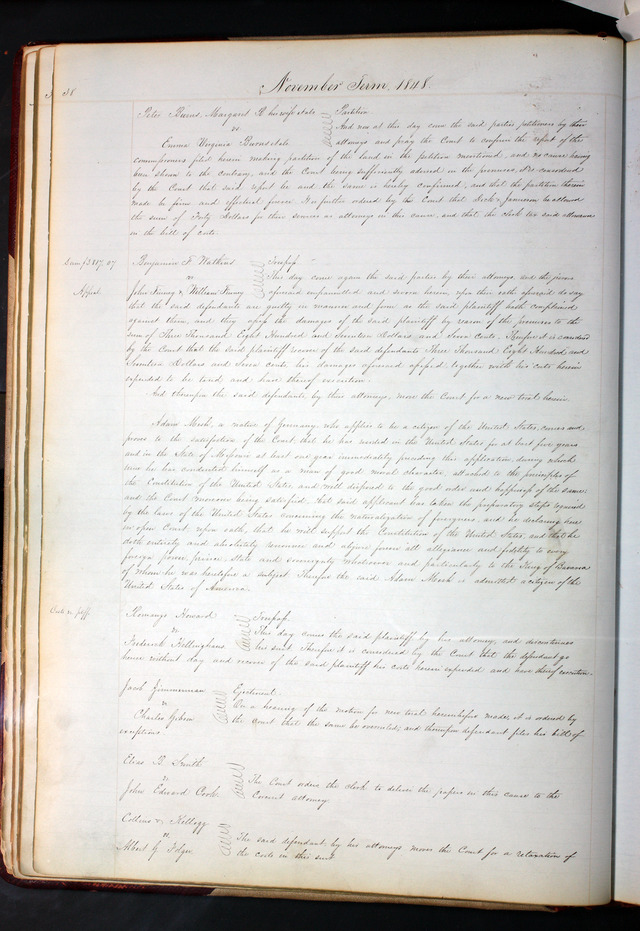 38
November Term 1848.
Peter Burns, Margaret R his wife et als Partition
vs And now at this day come the said parties petitioners by their
Emma Virginia Burns et als attorneys and pray the Court to confirm the report of the
commissioners filed herein making partition of the land in the petition mentioned, and no cause having
been shewn to the contrary, and the Court being sufficiently advised in the premises, it is considered
by the Court that said report be and the same is hereby confirmed, and that the partition therein
made be firm and effectual forever. It is further ordered by the Court that & Jameson be allowed
the sum of Forty Dollars for their services as attorneys in this cause, and that the clerk tax said allowance
in the bill of costs.
Dam $3817.07 Benjamin F Watkins Trespass
vs This day come again the said parties by their attorneys and the jurors
Appeal John Finney & William Finney aforesaid empannelled and sworn herein, upon their oath aforesaid do say
that the said defendants are guilty in manner and form as the said plaintiff hath complained
against them, and they assess the damages of the said plaintiff by reason of the premises to the
sum of Three Thousand Eight Hundred and Seventeen Dollars and Seven cents. Therefore it is considered
by the Court that the said plaintiff recover of the said defendants Three Thousand Eight Hundred and
Seventeen Dollars and Seven cents, his damages aforesaid assessed together with his costs herein
expended to be taxed and have thereof execution.
And thereupon the said defendants by their attorneys, move the Court for a new trial herein.
Adam Mesh, a native of Germany, who applies to be a citizen of the United States, comes and
proves to the satisfaction of the Court, that he has resided in the United States for at least five years
and in the State of Missouri at least one year immediately preceding this application; during which
time he has conducted himself as a man of good moral character, attached to the principles of
the Constitution of the United States, and well disposed to the good order and happiness of the same;
and the Court moreover being satisfied, that said applicant has taken the preparatory steps required
by the laws of the United States concerning the naturalization of foreigners, and he declaring here
in open Court upon oath, that he will support the Constitution of the United States, and that he
doth entirely and absolutely renounce and abjure forever all allegiance and fidelity to every
foreign power, prince, state and sovereignty whatsoever and particularly to the King of Bavaria
of whom he was heretofore a subject. Therefore the said Adam Mesh is admitted a citizen of the
United States of America.
Costs v. plff. Howard Trespass
vs This day comes the said plaintiff by his attorney, and discontinues
Frederick Kellinghaus his suit. Therefore it is considered by the Court that the defendant go
hence without day and recover of the said plaintiff his costs herein expended and have thereof execution.
Jacob Zimmerman Ejectment
vs On a hearing of the motion for new trial heretofore made, it is ordered by
Charles Gibson the Court that the same be overruled; and thereupon defendant files his bill of
exceptions.
Elias B Smith
vs The Court orders the clerk to deliver the papers in this cause to the
John Edward Cook Circuit attorney.
Collins & Kellogg
vs The said defendant, by his attorneys moves the Court for a retaxation of
Albert G Edgar the costs in this suit.